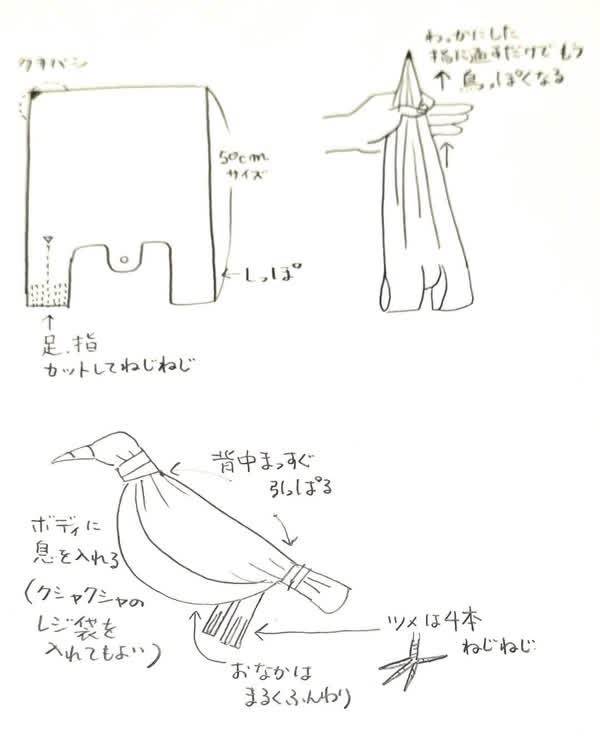 クチバシ
50cm
サイズ
←しっぽ
↑
足、指
カットしてねじねじ
わっかにした
指に通すだけでもう
↑鳥っぽくなる
背中まっすぐ
引っぱる
ボディに
息を入れる
(クシャクシャの
レジ袋を
入れてもよい)
おなかは
まるくふんわり
ツメは4本
ねじねじ